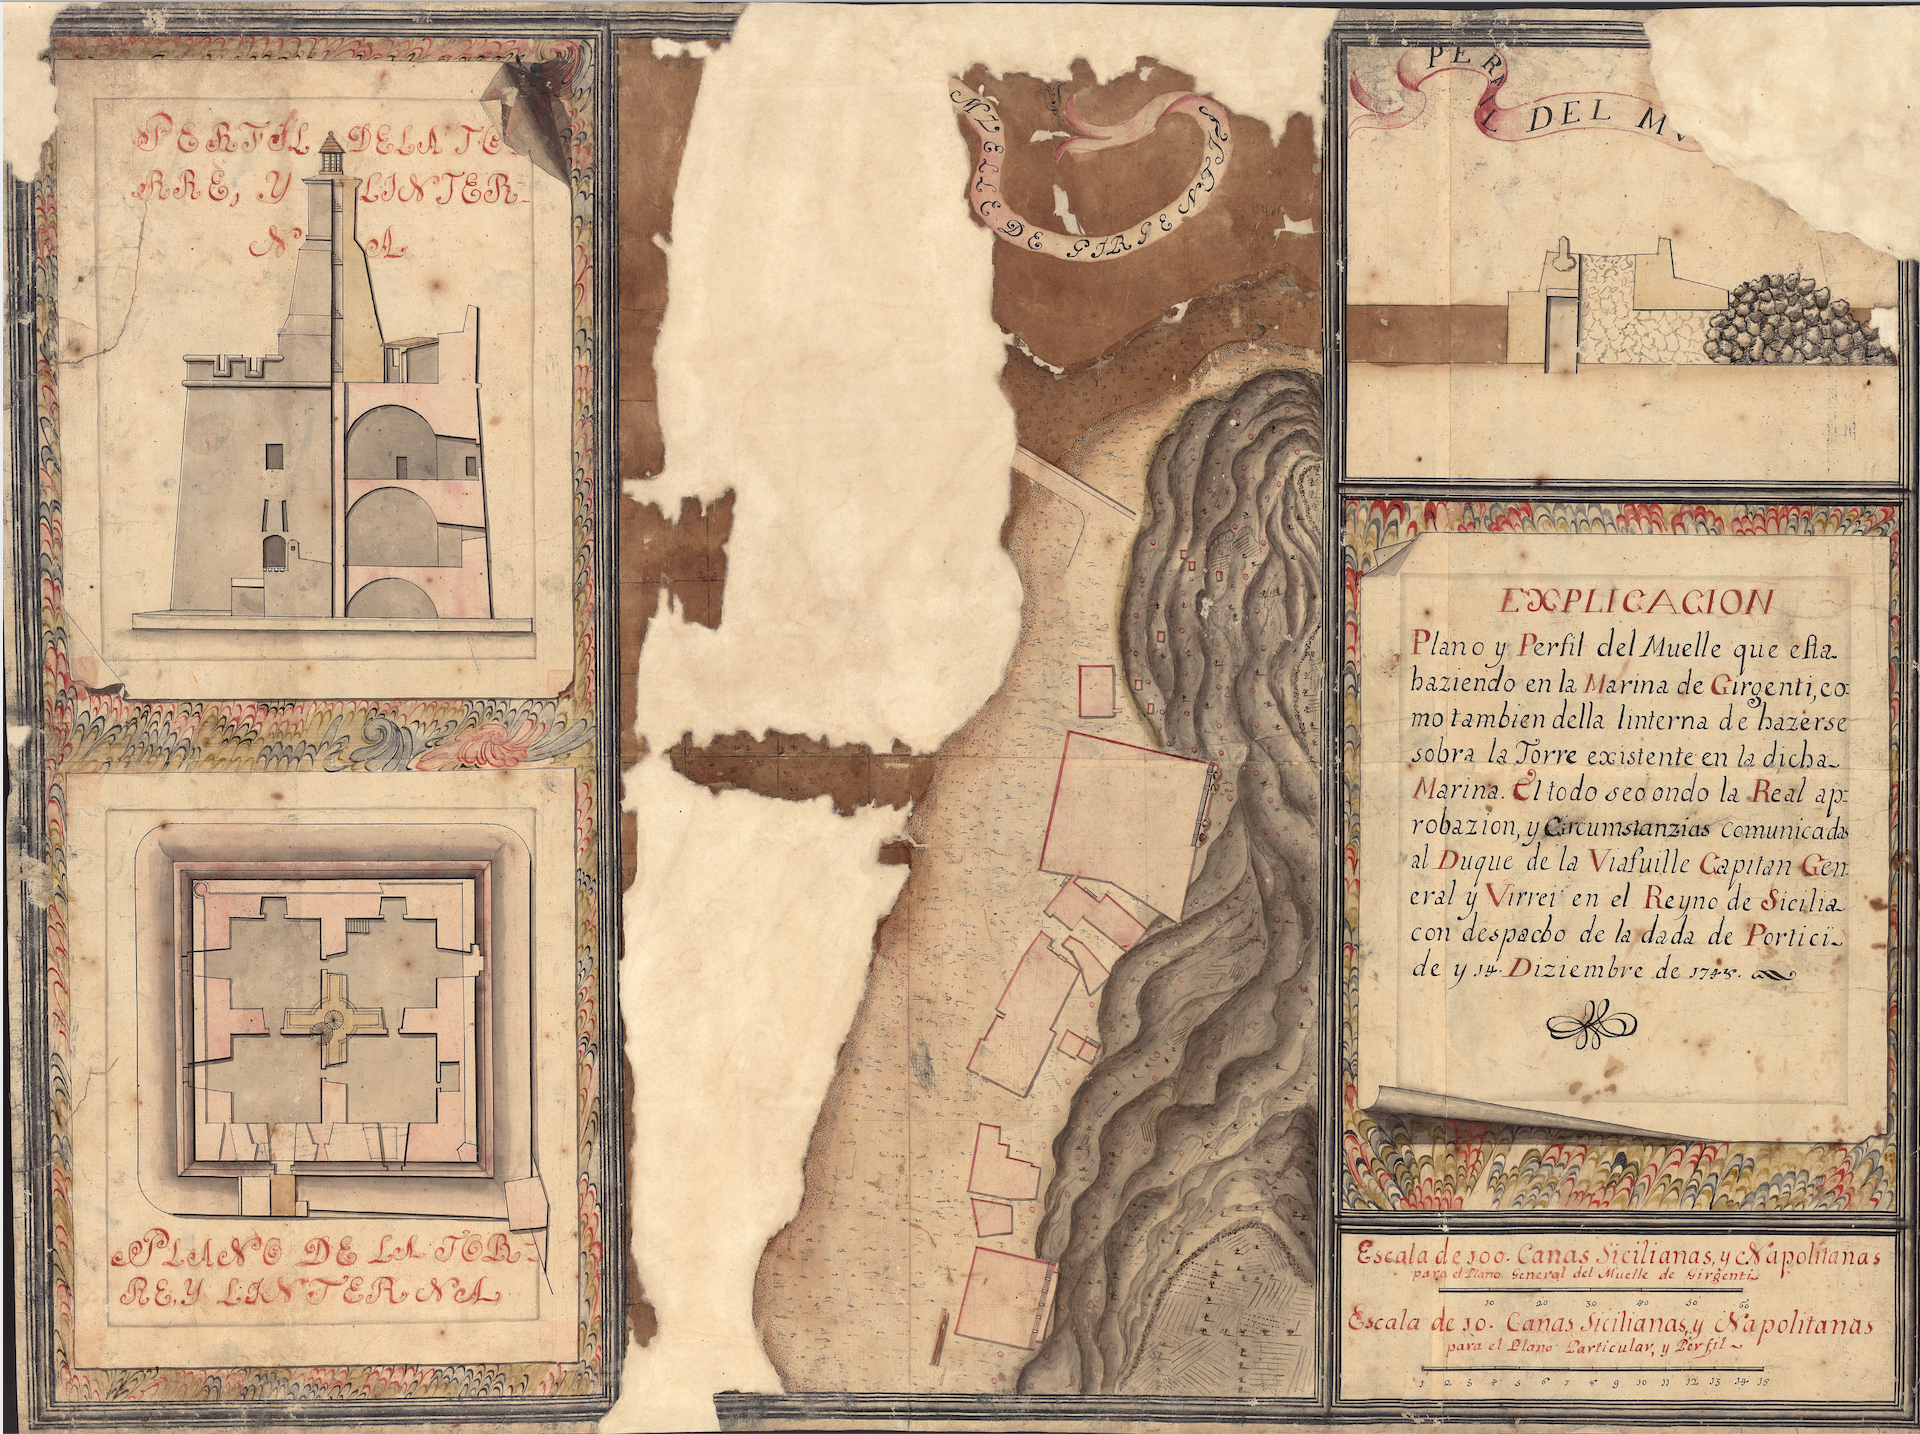 PERFIL DELA TO
RRE, Y LINTER-
NA
PLANO DE LA TOR-
RE, Y LINTERNA
MVELLE DE GIRGENTI
PERFIL DEL MV
EXPLICACION
Plano y Perfil del Muelle que esta
haziendo en la Marina de Girgenti, co=
mo tambien della linterna de hazerse
sobra la Torre existente en la dicha
Marina. El todo secondo la Real ap=
robazion, y Circumstanzias comunicadas
al Duque de la Viafuille Capitan Gen
eral y Virrei en el Reyno de Sicilia
con despacho de la dada de Portici
de y 14. Diziembre de 1748.
Escala de 100. Canas Sicilianas, y Napolitanas
para el Plano General del Muelle de Girgenti
10 20 30 40 50 60
Escala de 10. Canas Sicilianas, y Napolitanas
para el Plano Particular, y Perfil
1 2 3 4 5 6 7 8 9 10 11 12 13 14 15